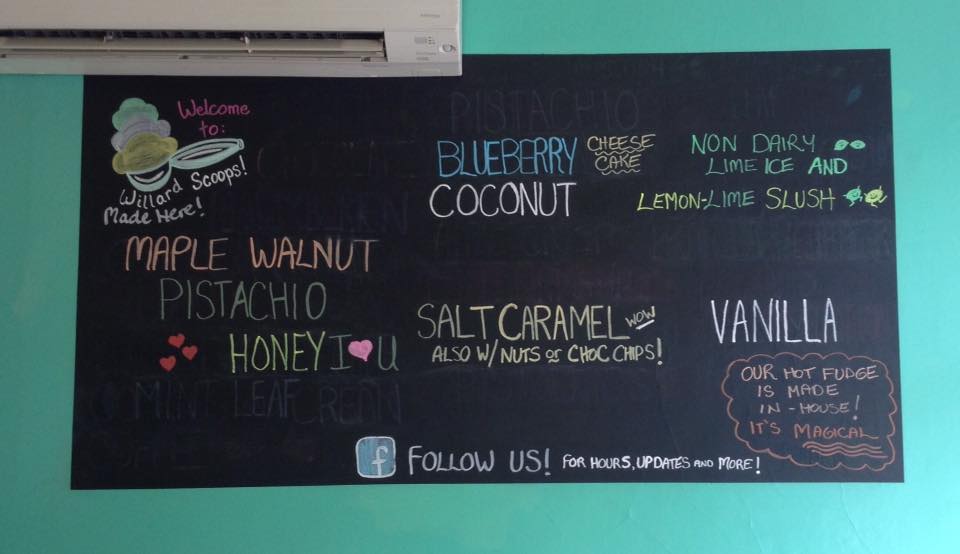 Welcome
to:
Willard Scoops!
Made Here!
MAPLE WALNUT
PISTACHIO
HONEY I U
MINT LEAF CREAM
PISTACHIO
BLUEBERRY CHEESE
CAKE
COCONUT
SALT CARAMEL WOW
ALSO W/ NUTS or CHOC CHIPS!
NON DAIRY
LIME ICE AND
LEMON-LIME SLUSH
VANILLA
OUR HOT FUDGE
IS MADE
IN-HOUSE!
IT'S MAGICAL
f FOLLOW US! FOR HOURS, UPDATES AND MORE!